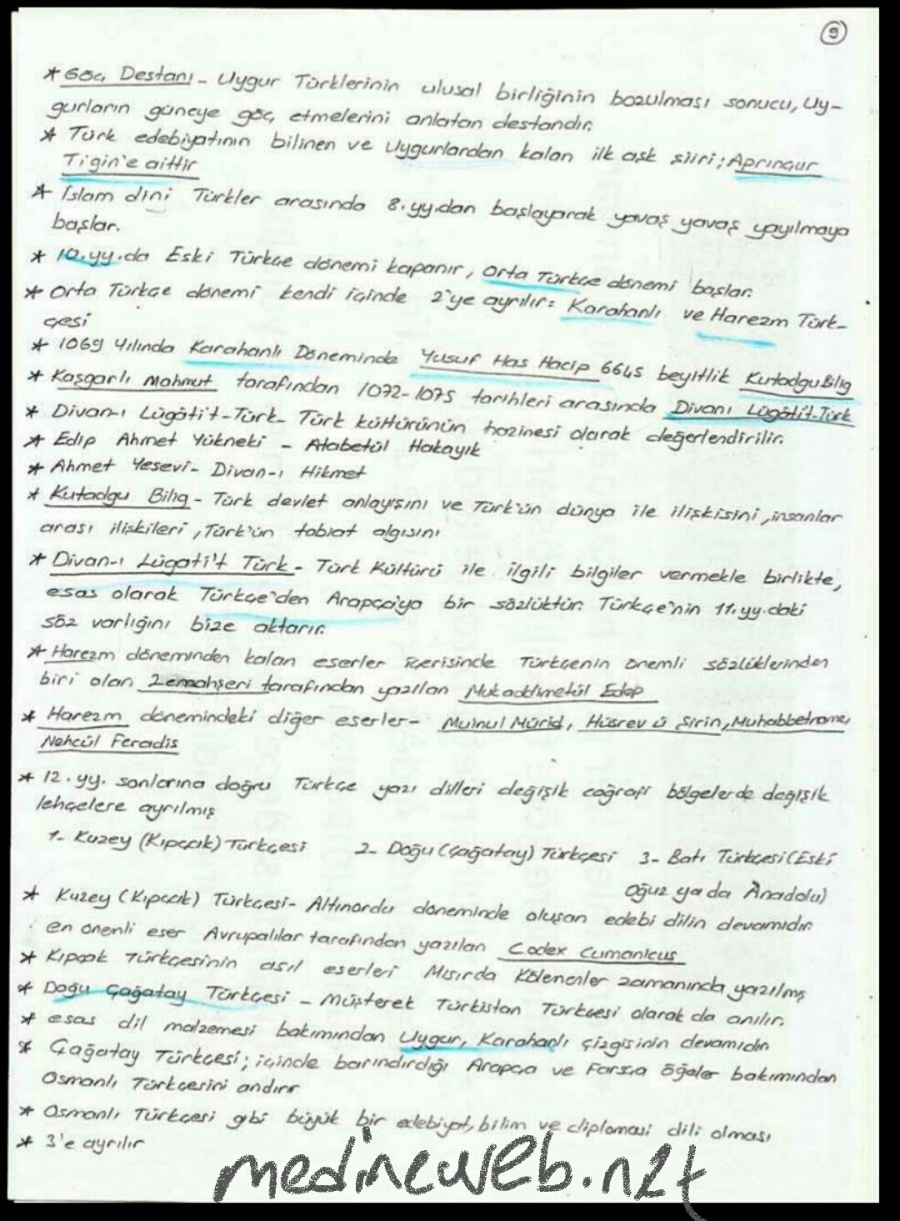 9
* Göç Destanı - Uygur Türklerinin ulusal birliğinin bozulması sonucu, Uy-
gurların güneye göç etmelerini anlatan destandır.
* Türk edebiyatının bilinen ve Uygurlardan kalan ilk aşk şiiri; Aprınçur
Tigin'e aittir
* İslam dini Türkler arasında 8.yy.dan başlayarak yavaş yavaş yayılmaya
başlar.
* 10.yy.da Eski Türkçe dönemi kapanır, Orta Türkçe dönemi başlar.
* Orta Türkçe dönemi kendi içinde 2'ye ayrılır: Karahanlı ve Harezm Türk-
çesi
* 1069 Yılında Karahanlı Döneminde Yusuf Has Hacip 6645 beyitlik Kutadgu Bilig
* Kaşgarlı Mahmut tarafından 1072-1075 tarihleri arasında Divanı Lügâti't-Türk
* Divan-ı Lügâti't-Türk- Türk kültürünün hazinesi olarak değerlendirilir.
* Edip Ahmet Yükneki - Atabetül Hakayık
* Ahmet Yesevi- Divan-ı Hikmet
* Kutadgu Bilig - Türk devlet anlayışını ve Türk'ün dünya ile ilişkisini, insanlar
arası ilişkileri, Türk'ün tabiat algısını
* Divan-ı Lügati't Türk - Türk Kültürü ile ilgili bilgiler vermekle birlikte,
esas olarak Türkçe'den Arapça'ya bir sözlüktür. Türkçe'nin 11.yy.daki
söz varlığını bize aktarır.
* Harezm döneminden kalan eserler içerisinde Türkçenin önemli sözlüklerinden
biri olan Zemahşeri tarafından yazılan Mukaddimetül Edep
* Harezm dönemindeki diğer eserler- Muinul Mürid, Hüsrev ü Şirin, Muhabbetname,
Nehcül Feradis
* 12.yy. sonlarına doğru Türkçe yazı dilleri değişik coğrafi bölgelerde değişik
lehçelere ayrılmış
1- Kuzey (Kıpçak) Türkçesi 2- Doğu (Çağatay) Türkçesi 3- Batı Türkçesi (Eski
Oğuz ya da Anadolu)
* Kuzey (Kıpçak) Türkçesi- Altınordu döneminde oluşan edebi dilin devamıdır.
en önenli eser Avrupalılar tarafından yazılan Codex Cumanicus
* Kıpçak Türkçesinin asıl eserleri Mısırda Kölenenler zamanında yazılmış
* Doğu Çağatay Türkçesi - Müşterek Türkistan Türkçesi olarak da anılır.
* esas dil malzemesi bakımından Uygur, Karahanlı çizgisinin devamıdır.
* Çağatay Türkçesi; içinde barındırdığı Arapça ve Farsça öğeler bakımından
Osmanlı Türkçesini andırır
* Osmanlı Türkçesi gibi büyük bir edebiyat, bilim ve diplomasi dili olması
* 3'e ayrılır
medineweb.n2t